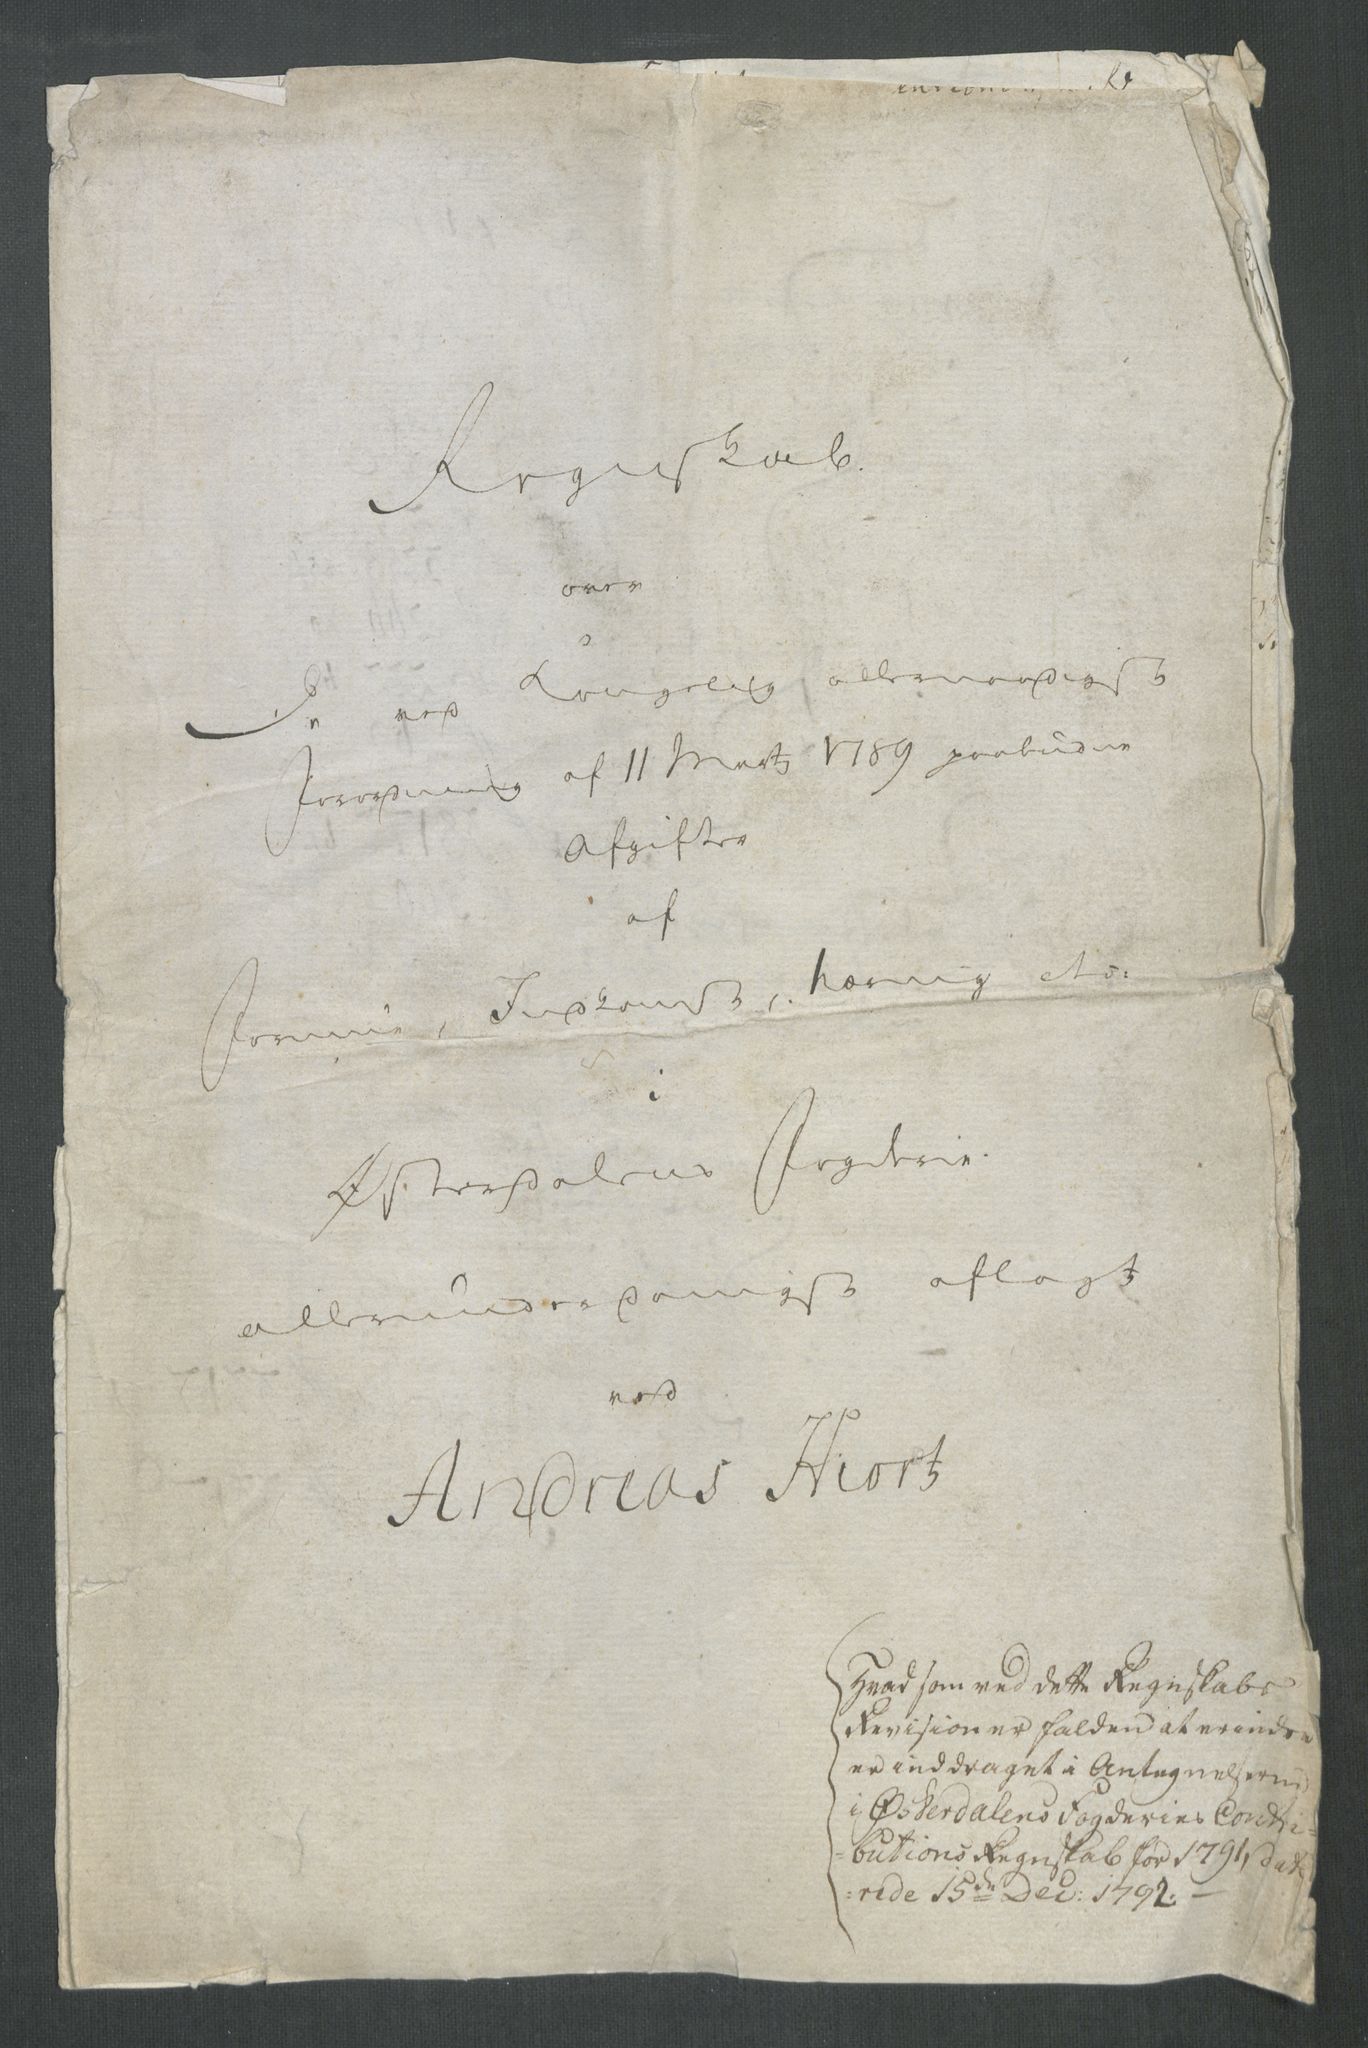 Regnskab.
over
De ved Kongelig allernaadigst
Forordning af 11 Martz 1789 paabudne
Afgifter
af
Formue, Indkomst, Næring etc:
i
Østerdalens Fogderie.
allerunderdanigst aflagt
ved
Andreas Hiort
Hvad som ved dette Regnskabs
Revision er falden at erindre
er inddraget i Antegnelserne
i Østerdalens Fogderies Contri=
=butions Regnskab for 1791, date
=rede 15de Dec: 1792. —